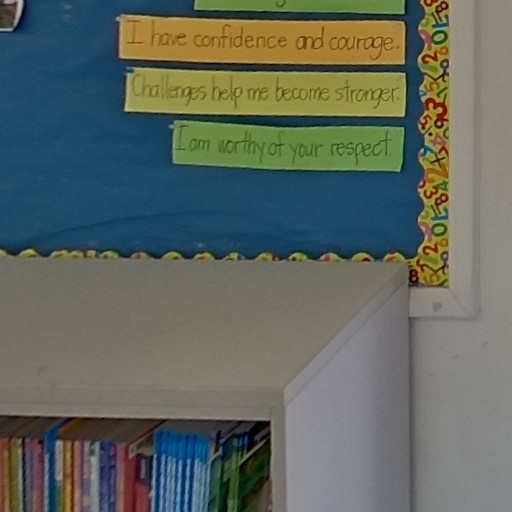 I have confidence and courage.
Challenges help me become stronger.
I am worthy of your respect.